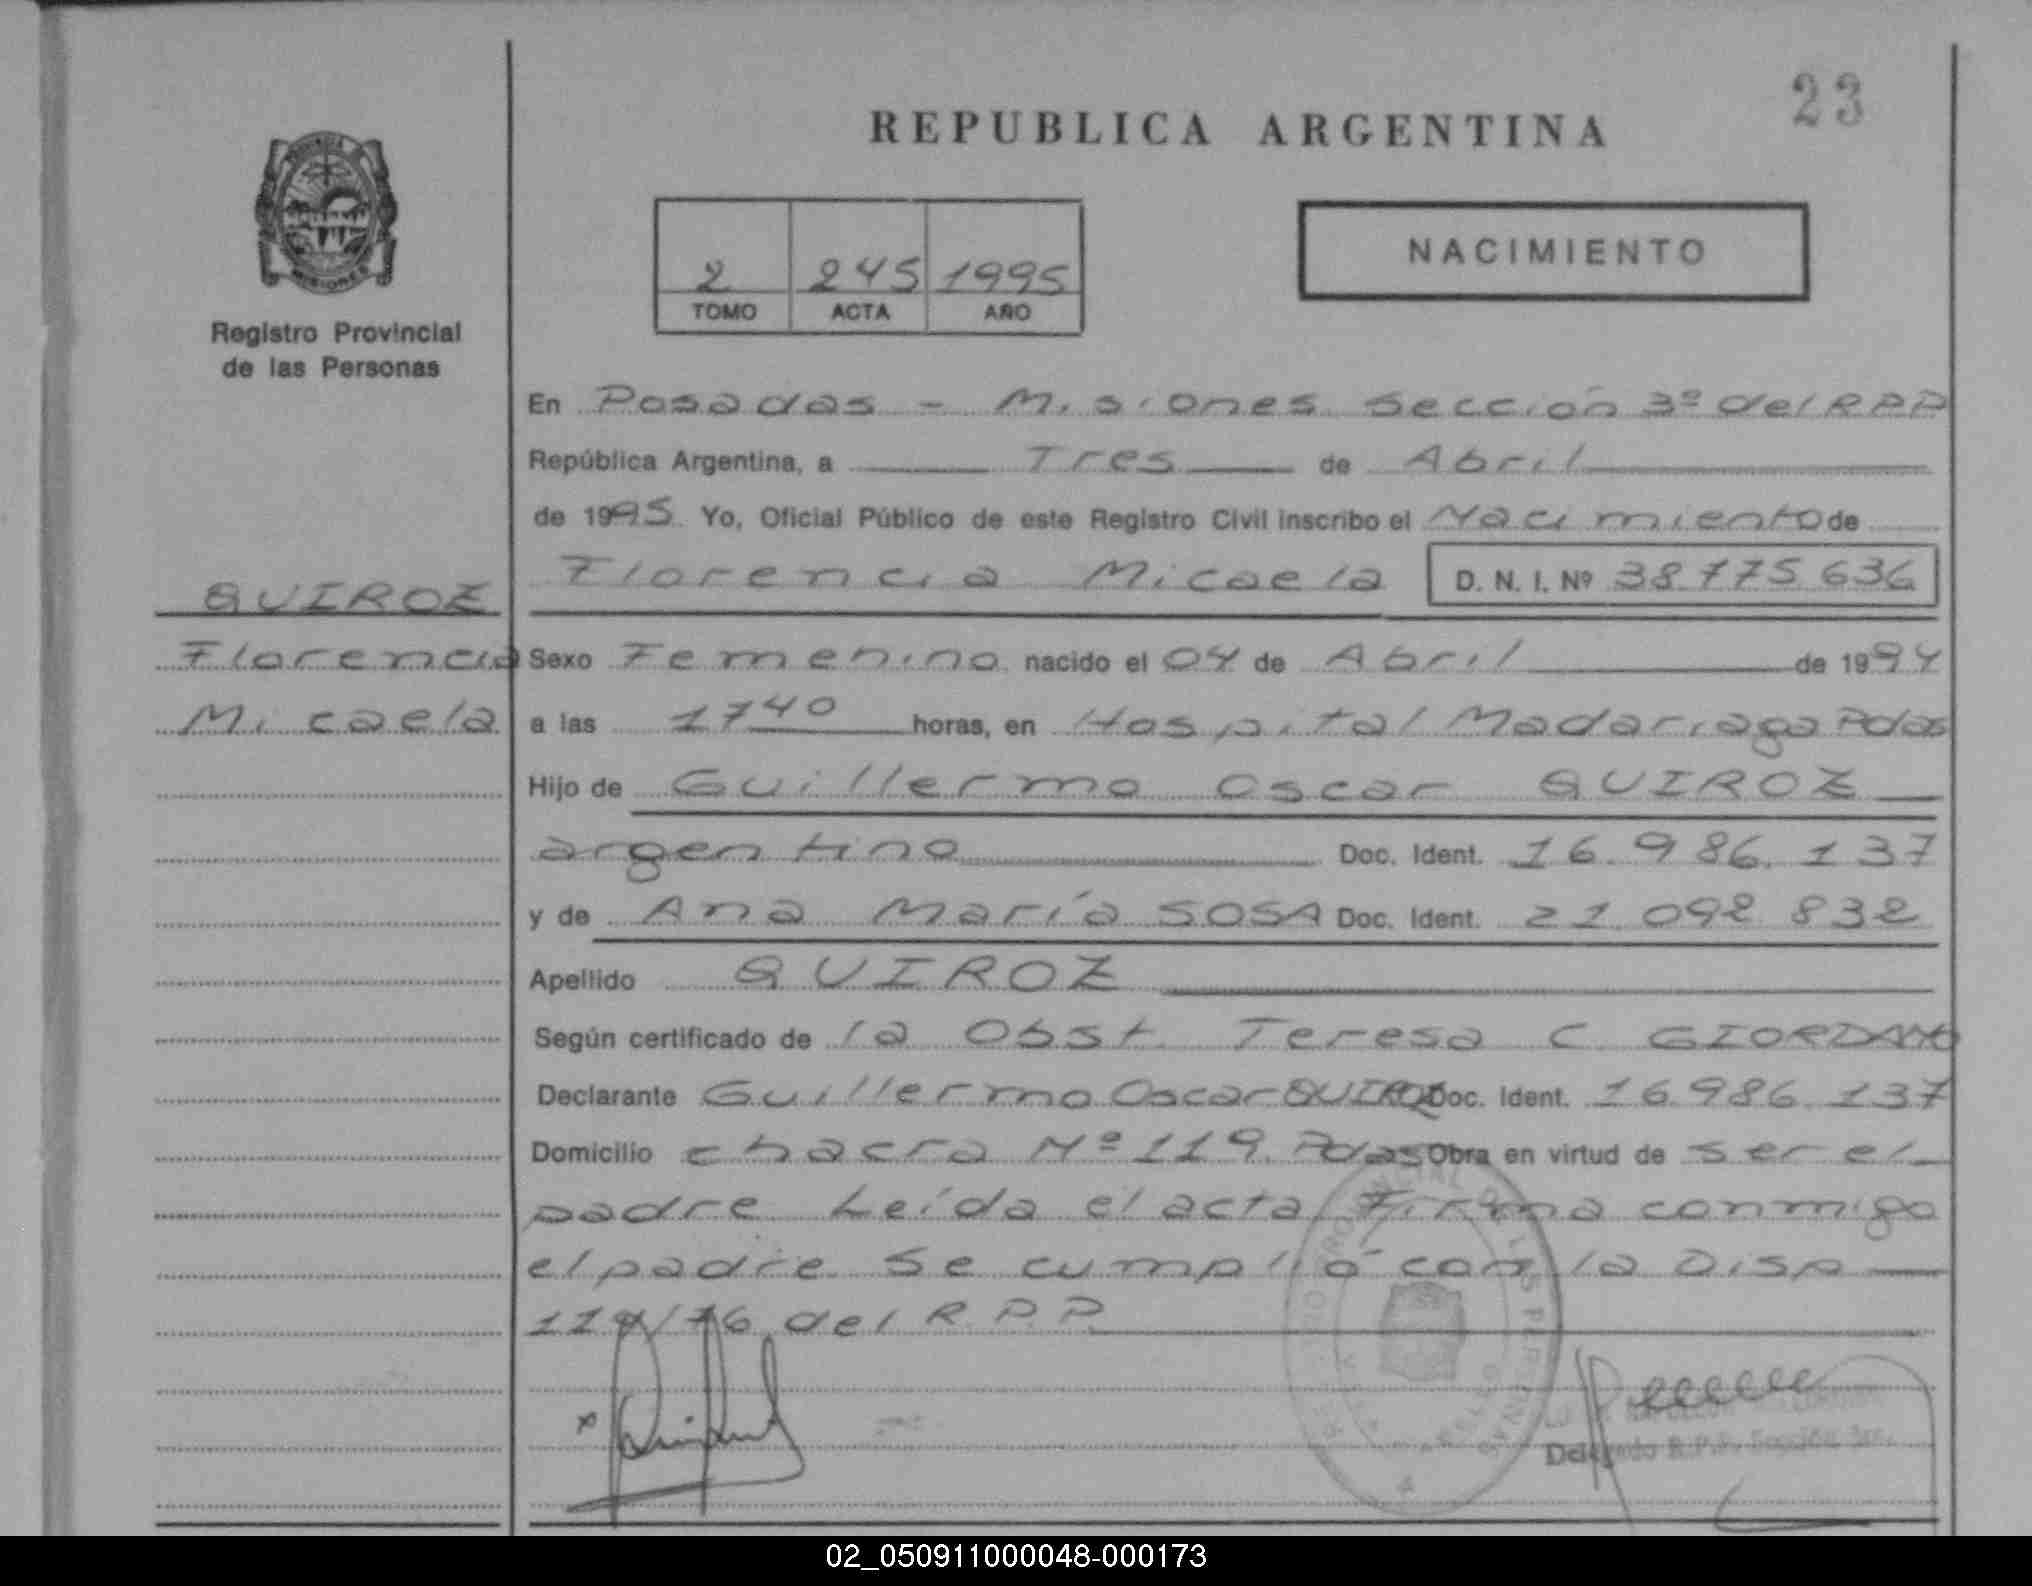 23
REPUBLICA ARGENTINA
MISIONES
Registro Provincial
de las Personas
2 245 1995
TOMO ACTA AÑO
NACIMIENTO
En Posadas - Misiones Sección 3º del R P P
República Argentina, a Tres de Abril
de 1995 Yo, Oficial Público de este Registro Civil inscribo el Nacimiento de
Florencia Micaela D. N. I. Nº 38.775.636
QUIROZ
Florencia
Micaela
Sexo Femenino nacido el 04 de Abril de 1994
a las 17 40 horas, en Hospital Madariaga Pdas
Hijo de Guillermo Oscar QUIROZ
argentino Doc. Ident. 16.986.137
y de Ana María SOSA Doc. Ident. 21.092.832
Apellido QUIROZ
Según certificado de la Obst. Teresa C. GIORDANO
Declarante Guillermo Oscar QUIROZ Doc. Ident. 16.986.137
Domicilio chacra Nº 119. Pdas Obra en virtud de ser el
padre Leída el acta Firma conmigo
el padre Se cumplió con la Disp
/76 del R.P.P.
Delegado R.P.P. Sección 3ra.
02_050911000048-000173